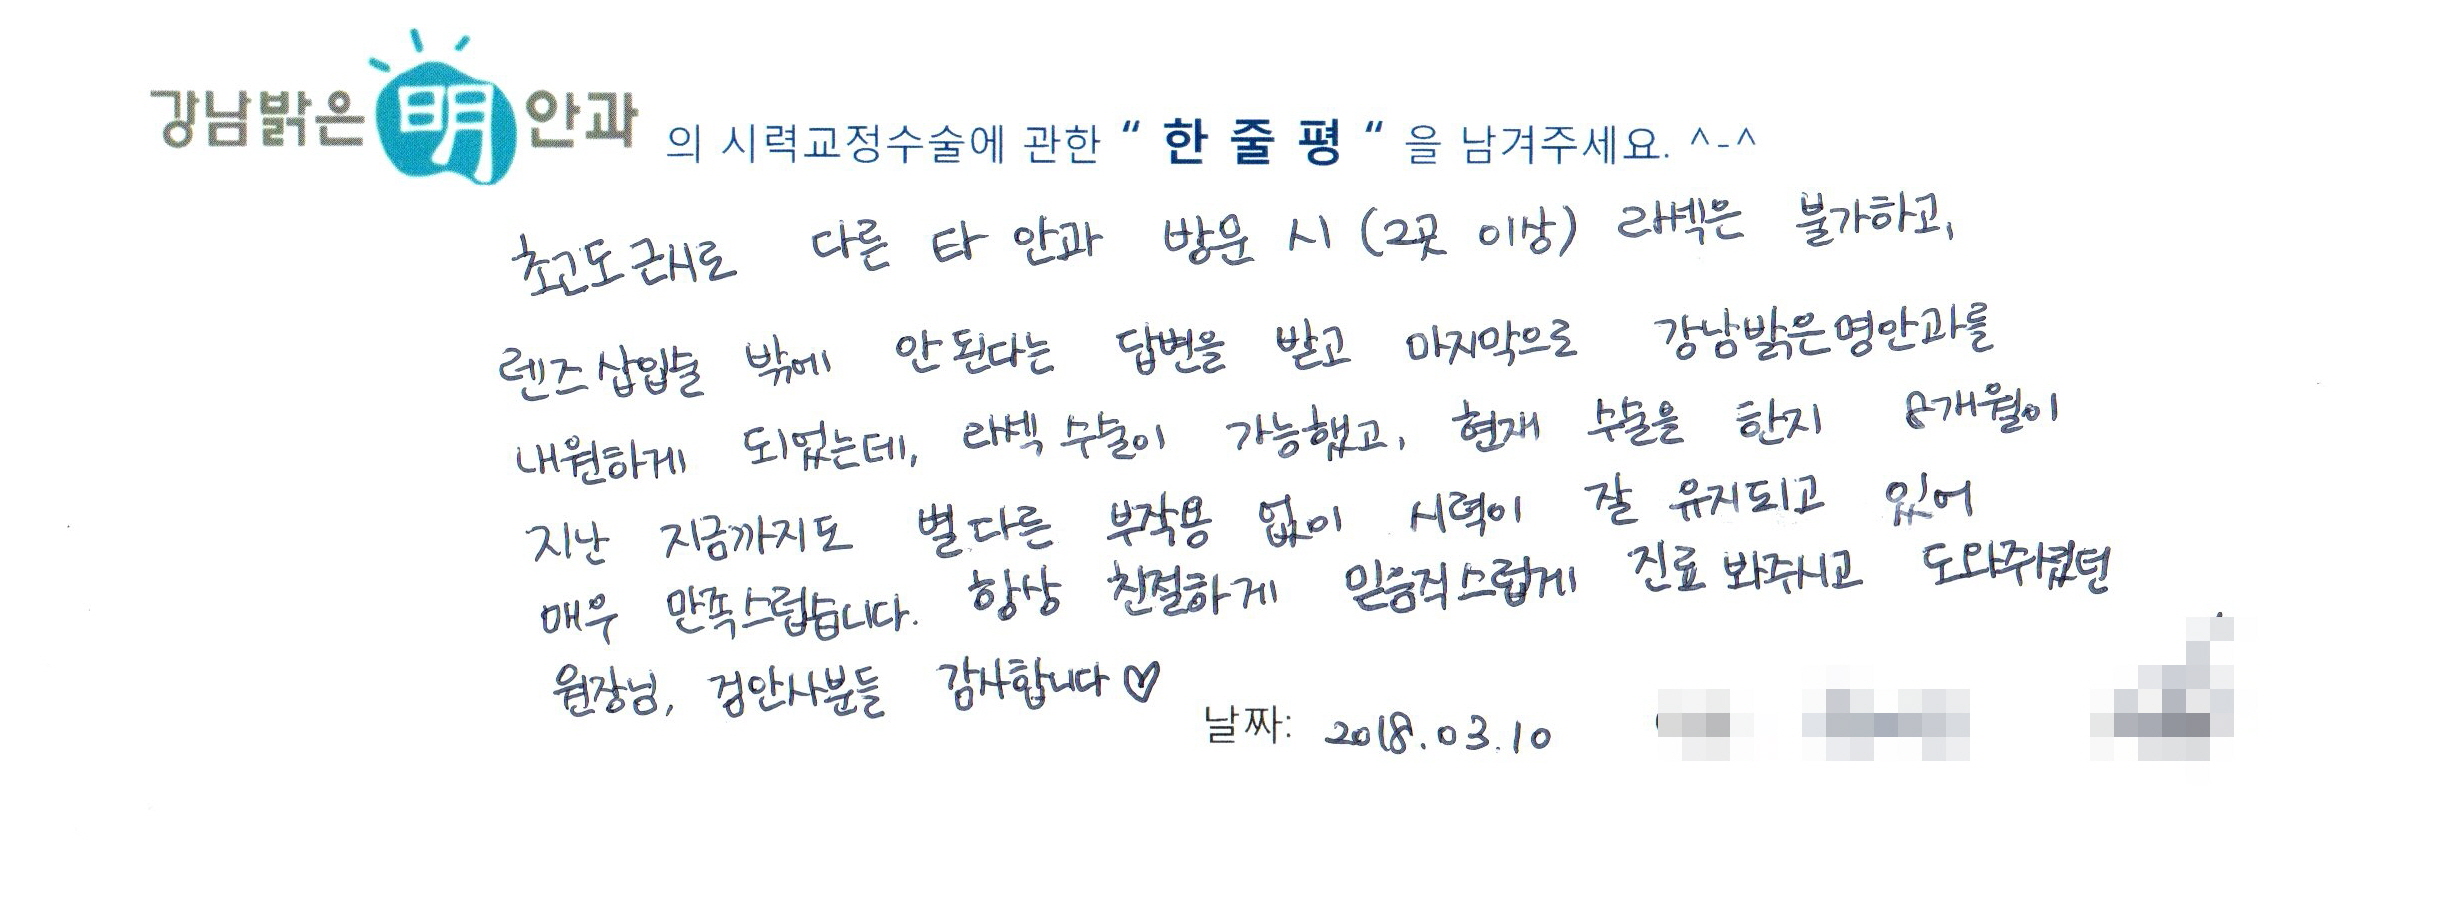 강남밝은明안과 의 시력교정수술에 관한 " 한 줄 평 " 을 남겨주세요. ^-^
초고도 근시로 다른 타 안과 방문 시 (2곳 이상) 라섹은 불가하고,
렌즈삽입술 밖에 안된다는 답변을 받고 마지막으로 강남밝은명안과를
내원하게 되었는데, 라섹 수술이 가능했고, 현재 수술을 한지 8개월이
지난 지금까지도 별다른 부작용 없이 시력이 잘 유지되고 있어
매우 만족스럽습니다. 항상 친절하게 믿음직스럽게 진료 봐주시고 도와주셨던
원장님, 검안사분들 감사합니다♡
날짜: 2018.03.10